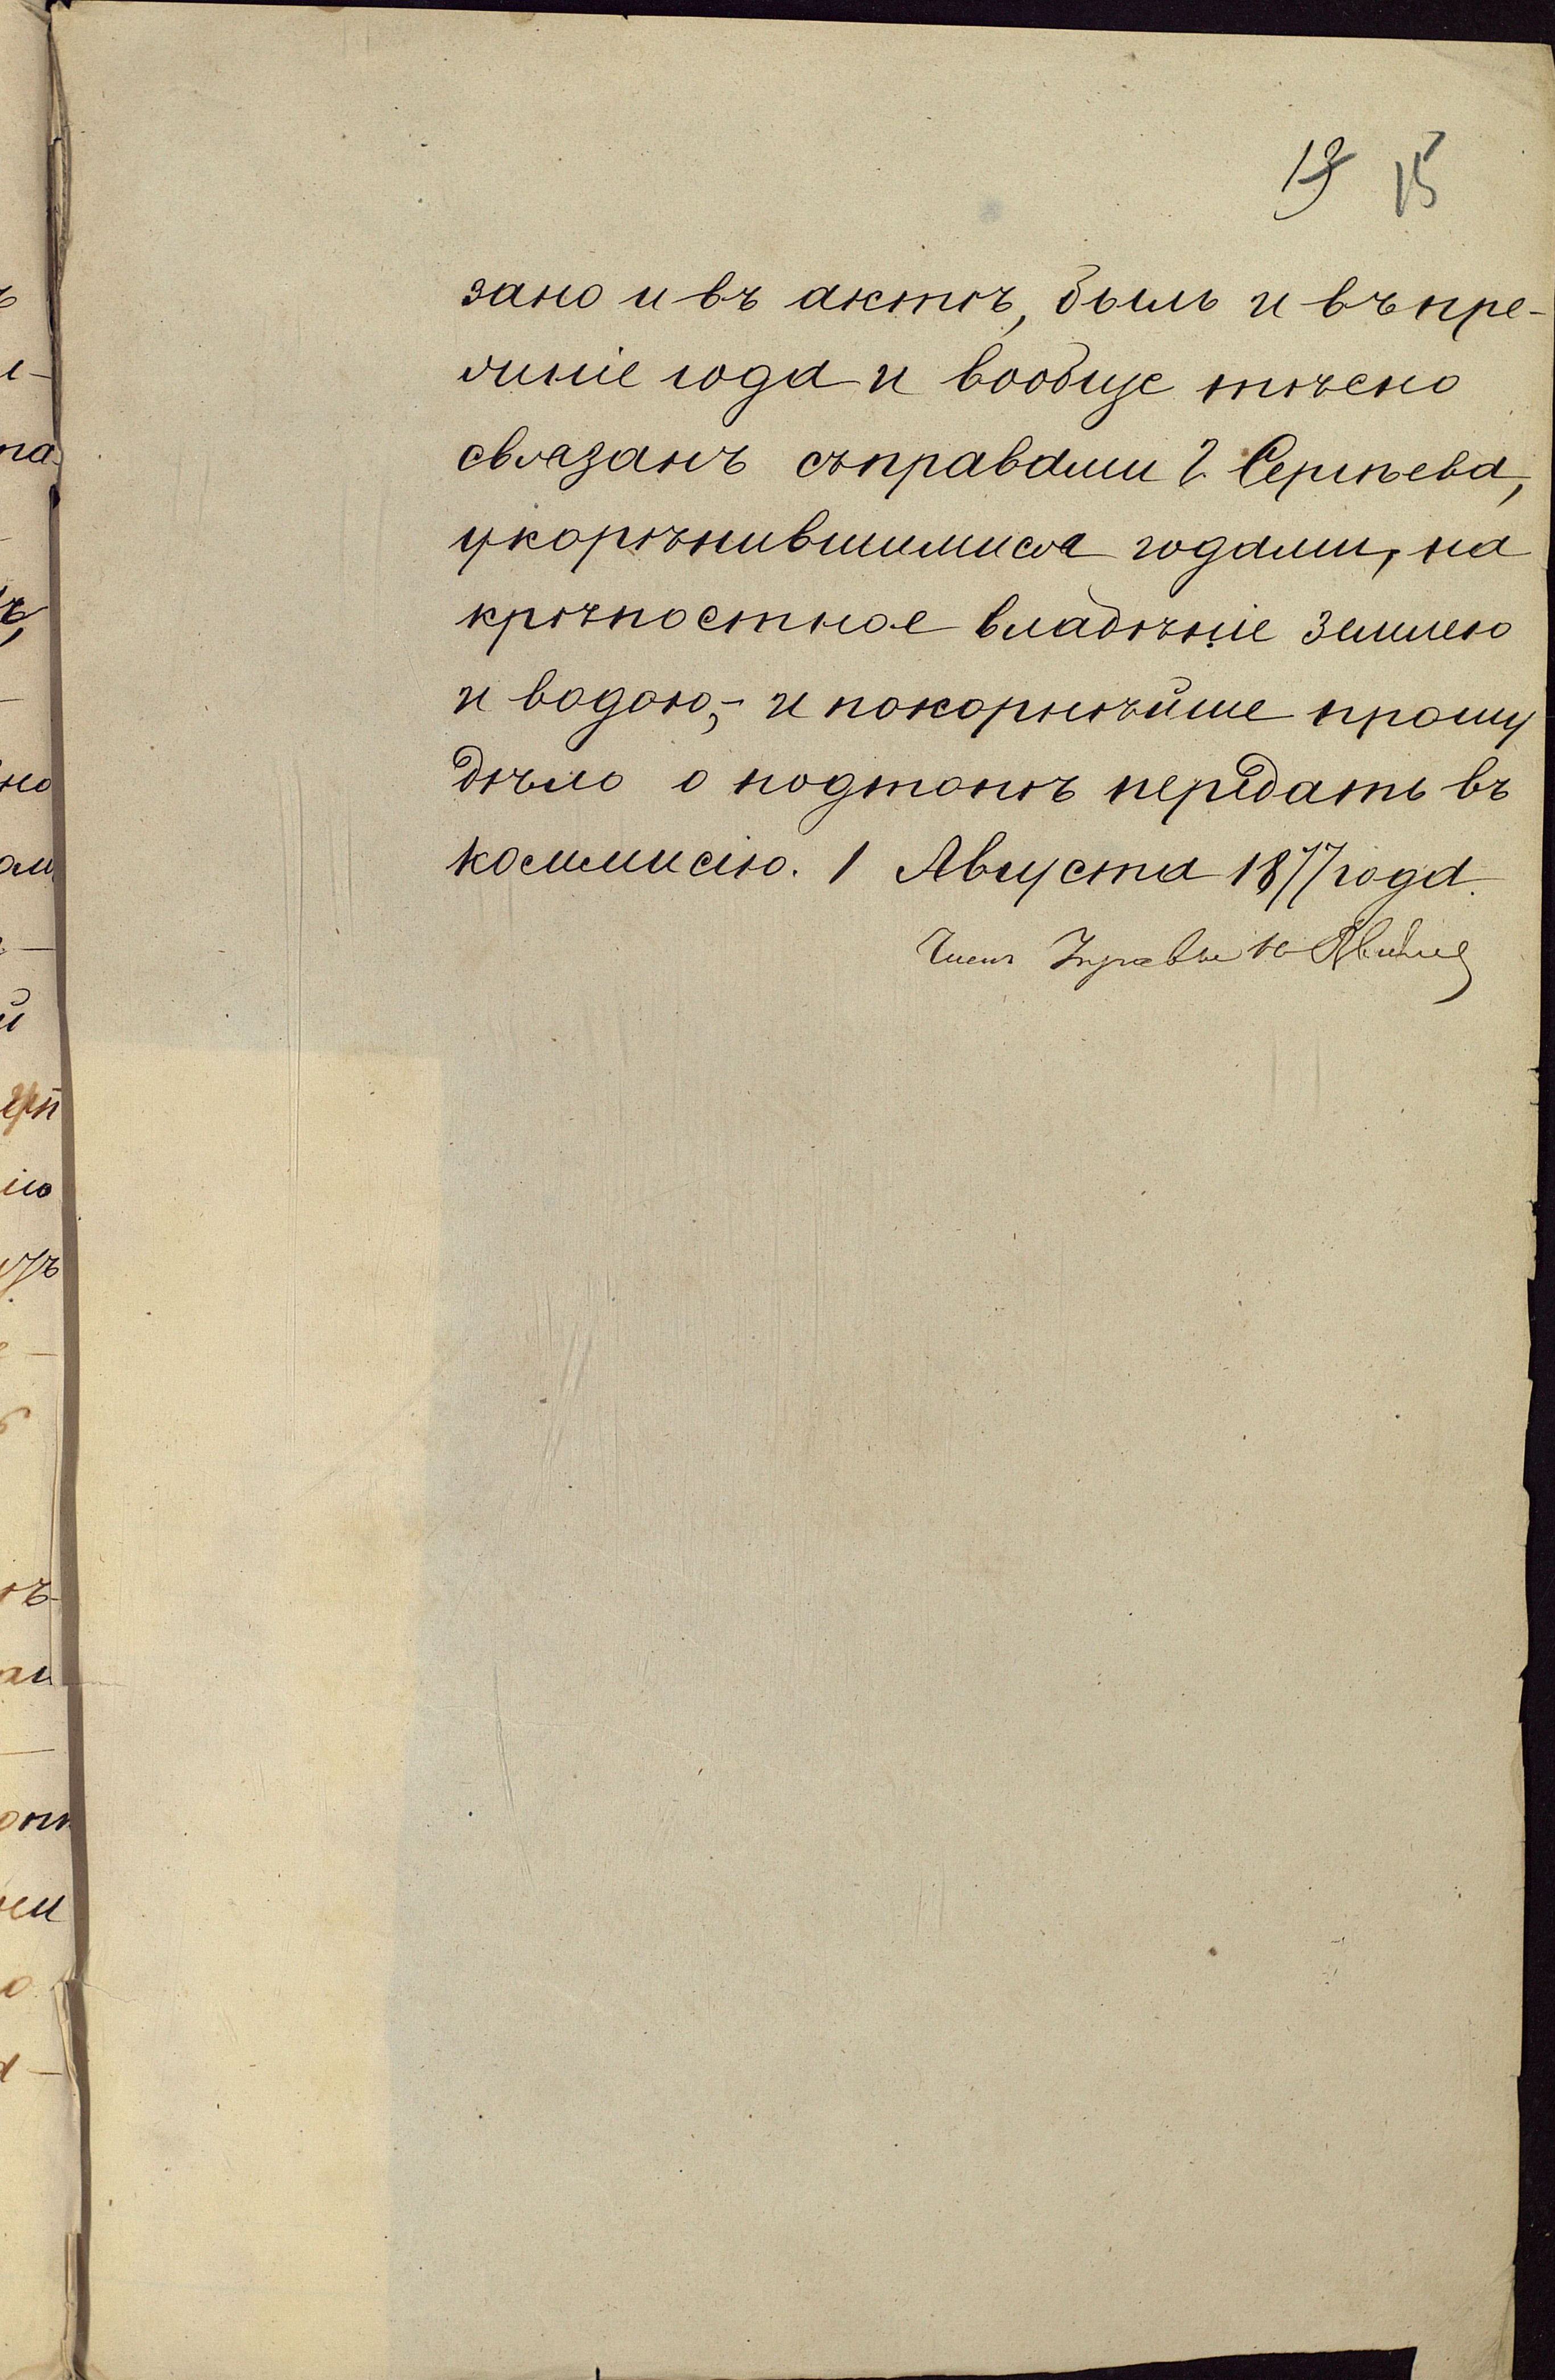 13 15
зано и въ актѣ, былъ и въ пре-
линіе года и вообще тѣсно
связанъ съ правами г. Сергѣева,
укоренѣвшимися годами, на
крѣпостное владѣніе землею
и водою,- и покорнѣйше прошу
дѣло о подтопѣ передать въ
коммисію. 1 Августа 1877 года.
Членъ Управы